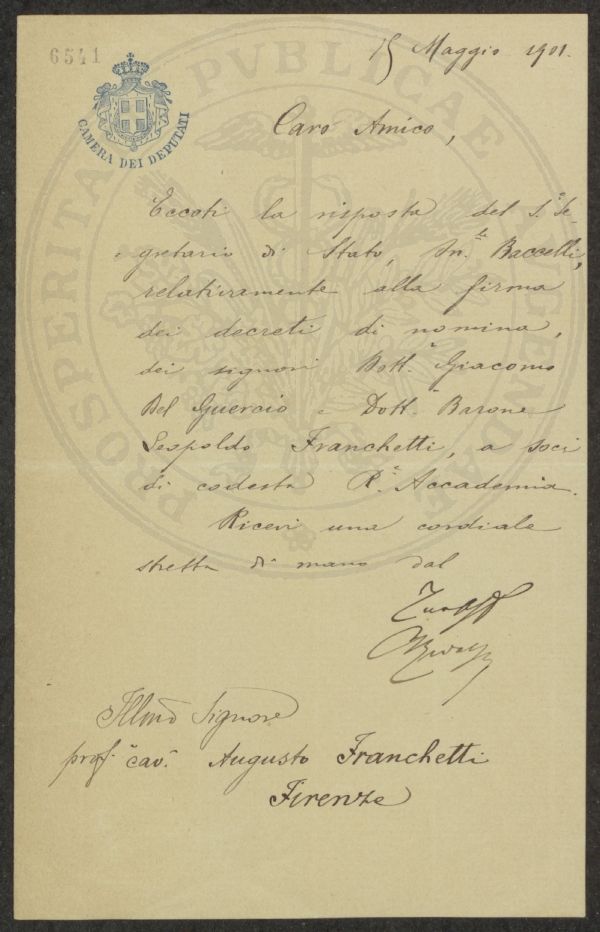 6541
CAMERA DEI DEPUTATI
PROSPERITATI PUBLICAE AUGENDAE
15 Maggio 1901.
Caro Amico,
Eccoti la risposta del S.o Se-
gretario di Stato, On.le Baccelli,
relativamente alla firma
dei decreti di nomina,
dei signori Dott. Giacomo
Del Guercio e Dott. Barone
Leopoldo Franchetti, a soci
di codesta R.a Accademia.
Ricevi una cordiale
stretta di mano dal
Illmo Signore
prof. cav. Augusto Franchetti
Firenze